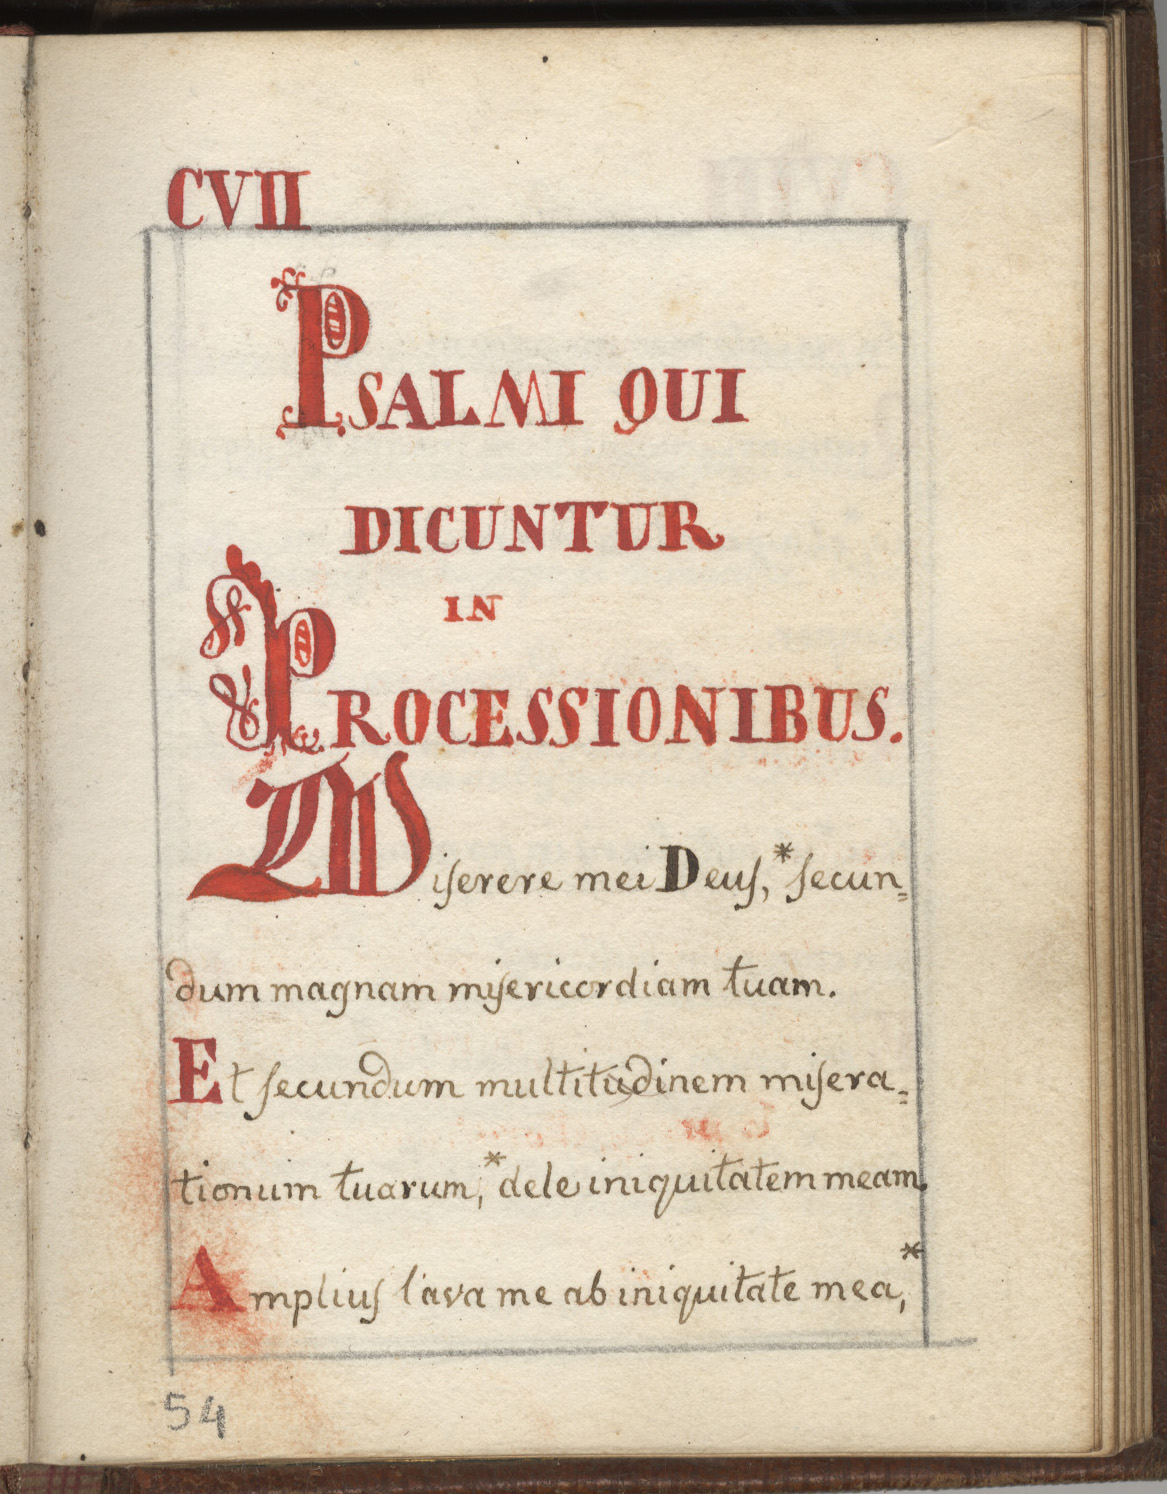 CVII
PSALMI QUI
DICUNTUR
IN
PROCESSIONIBUS.
Miserere mei Deus,* secun=
dum magnam misericordiam tuam.
Et secundum multitudinem misera=
tionum tuarum,* dele iniquitatem meam.
Amplius lava me ab iniquitate mea,*
54